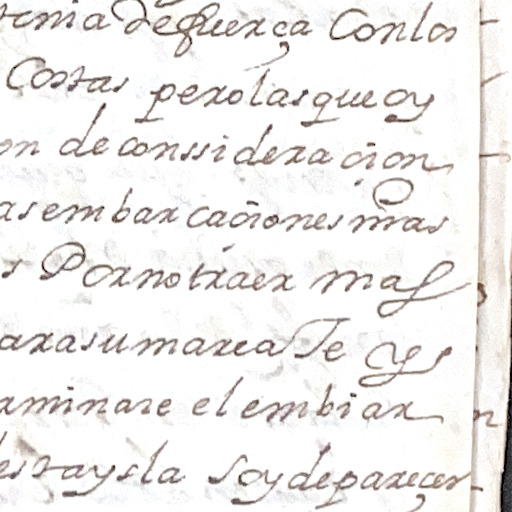 tenia de fuerça Con los
Costas pero las que oy
on de conssideraçion
as embarcaçiones mas
s Por no traer mas
ara su marea Te ys
rminare el embiar
desta ysla Soy de pareçer